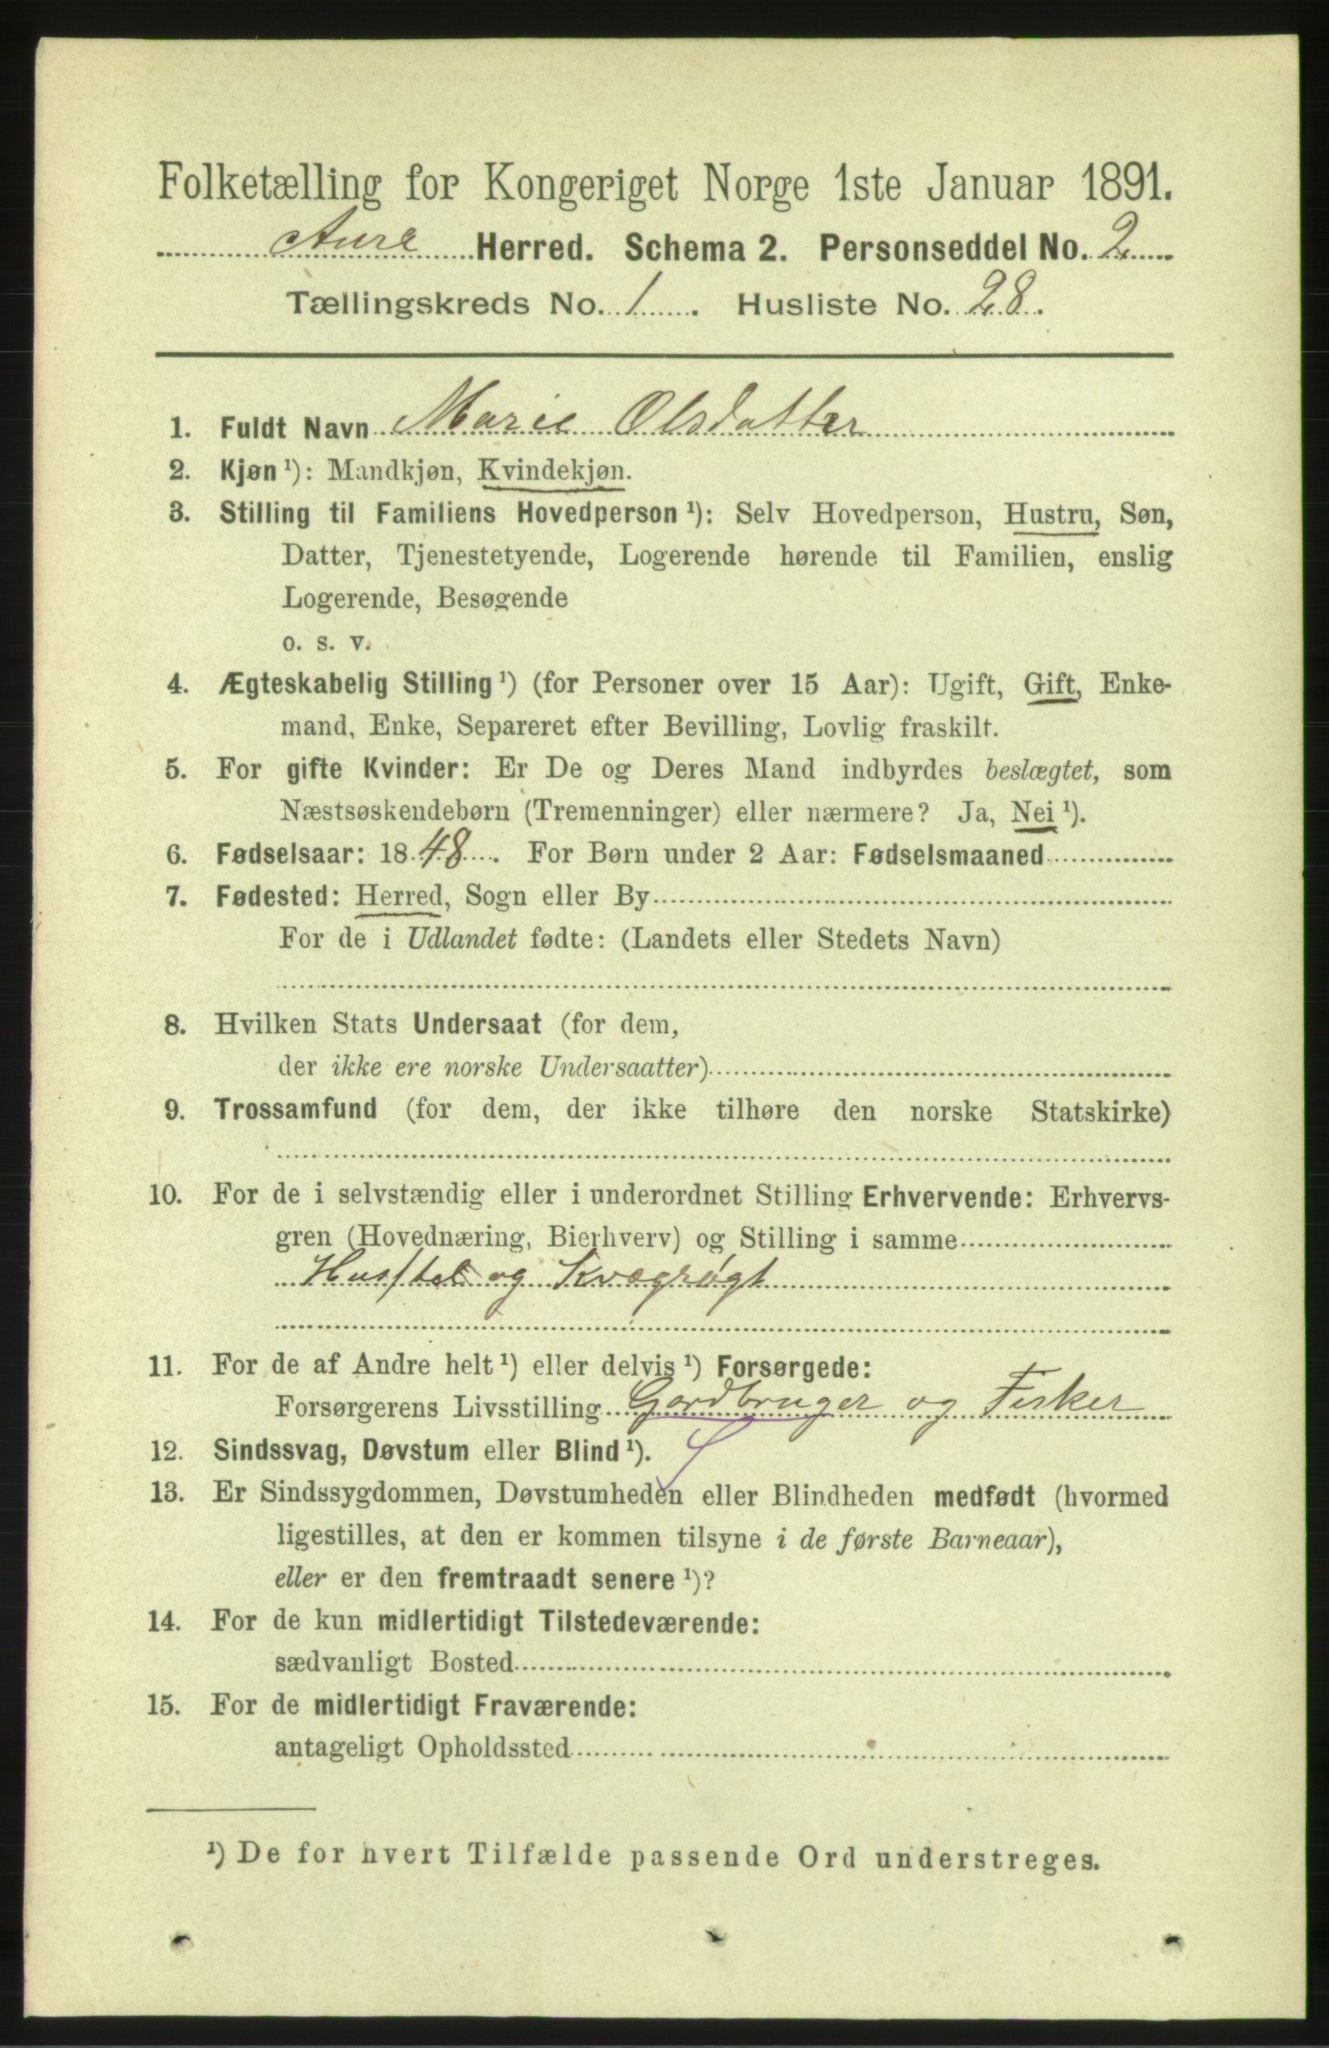 Folketælling for Kongeriget Norge 1ste Januar 1891.
Aure Herred. Schema 2. Personseddel No. 2
Tællingskreds No. 1. Husliste No. 28.
1. Fuldt Navn Marie Olsdatter
2. Kjøn ¹): Mandkjøn, Kvindekjøn.
3. Stilling til Familiens Hovedperson ¹): Selv Hovedperson, Hustru, Søn,
Datter, Tjenestetyende, Logerende hørende til Familien, enslig
Logerende, Besøgende
o. s. v.
4. Ægteskabelig Stilling ¹) (for Personer over 15 Aar): Ugift, Gift, Enke-
mand, Enke, Separeret efter Bevilling, Lovlig fraskilt.
5. For gifte Kvinder: Er De og Deres Mand indbyrdes beslægtet, som
Næstsøskendebørn (Tremenninger) eller nærmere? Ja, Nei ¹).
6. Fødselsaar: 1848. For Børn under 2 Aar: Fødselsmaaned
7. Fødested: Herred, Sogn eller By
For de i Udlandet fødte: (Landets eller Stedets Navn)
8. Hvilken Stats Undersaat (for dem,
der ikke ere norske Undersaatter)
9. Trossamfund (for dem, der ikke tilhøre den norske Statskirke)
10. For de i selvstændig eller i underordnet Stilling Erhvervende: Erhvervs-
gren (Hovednæring, Bierhverv) og Stilling i samme
Husstel og Kvægrøgt
11. For de af Andre helt ¹) eller delvis ¹) Forsørgede:
Forsørgerens Livsstilling Gardbruger og Fisker
12. Sindssvag, Døvstum eller Blind ¹).
13. Er Sindssygdommen, Døvstumheden eller Blindheden medfødt (hvormed
ligestilles, at den er kommen tilsyne i de første Barneaar),
eller er den fremtraadt senere ¹)?
14. For de kun midlertidigt Tilstedeværende:
sædvanligt Bosted
15. For de midlertidigt Fraværende:
antageligt Opholdssted
¹) De for hvert Tilfælde passende Ord understreges.